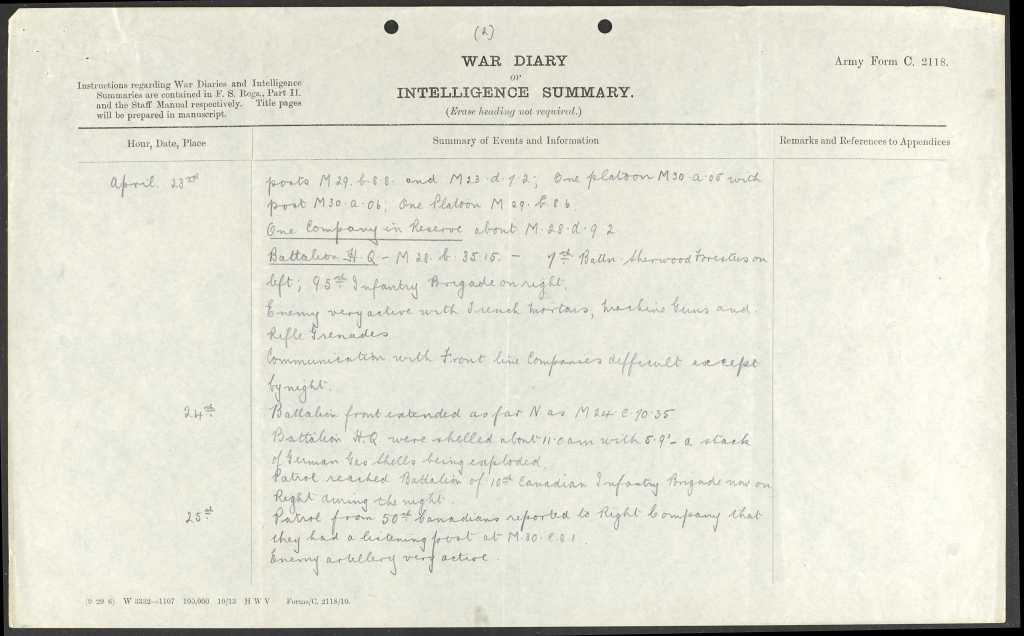 (2)
WAR DIARY
or
INTELLIGENCE SUMMARY.
(Erase heading not required.)
Army Form C. 2118.
Instructions regarding War Diaries and Intelligence
Summaries are contained in F. S. Regs., Part II.
and the Staff Manual respectively. Title pages
will be prepared in manuscript.
Hour, Date, Place
Summary of Events and Information
Remarks and References to Appendices
April. 23rd
posts M29.b.8.8. and M23.d.9.2; One platoon M30.a.05 with
post M30.a.06; One Platoon M 29.b.8.6.
One Company in Reserve about M.28.d.9.2
Battalion H.Q - M 28.b.35.15. - Battn. Sherwood Foresters on
left; 95th Infantry Brigade on right.
Enemy very active with Trench Mortars, Machine Guns and
Rifle Grenades
Communication with Front line Companies difficult except
by night.
24th
Battalion front extended as far N as M24.c.70.35
Battalion H.Q were shelled about 11.0 am with 5.9" - a stack
of German Gas Shells being exploded.
Patrol reached Battalion of 10th Canadian Infantry Brigade now on
Right during the night.
25th
Patrol from 50th Canadians reported to Right Company that
they had a listening post at M.30.c.8.1.
Enemy artillery very active.
(9 29 6) W 3332—1107 100,000 10/13 H W V Forms/C. 2118/10.